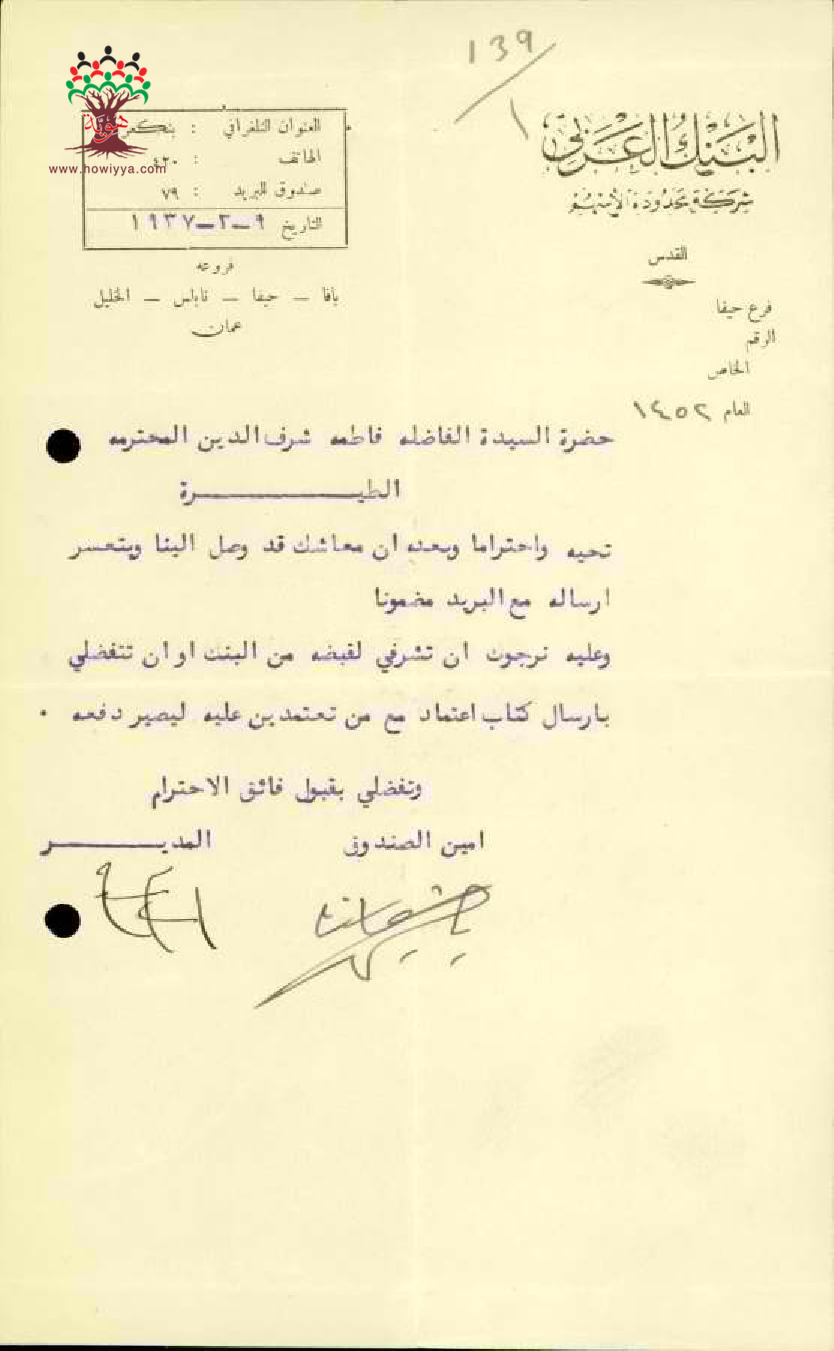 139
١
البنك العربي
شركة محدودة الأسهم
القدس
فرع حيفا
الرقم
الخاص
العام ١٤٥٢
هوية
www.howiyya.com
العنوان التلغرافي :
الهاتف : ٤٢٠
صندوق البريد : ٧٩
التاريخ ٩-٢-١٩٣٧
فروعه
يافا – حيفا – نابلس – الخليل
عمان
حضرة السيدة الفاضله فاطمه شرف الدين المحترمه
الطيــــــــرة
تحيه واحتراما وبعده ان معاشك قد وصل الينا ويتعسر
ارساله مع البريد مضمونا
وعليه نرجوك ان تشرفي لقبضه من البنك او ان تتفضلي
بارسال كتاب اعتماد مع من تعتمدين عليه ليصير دفعه .
وتفضلي بقبول فائق الاحترام
امين الصندوق
المديــــــــر